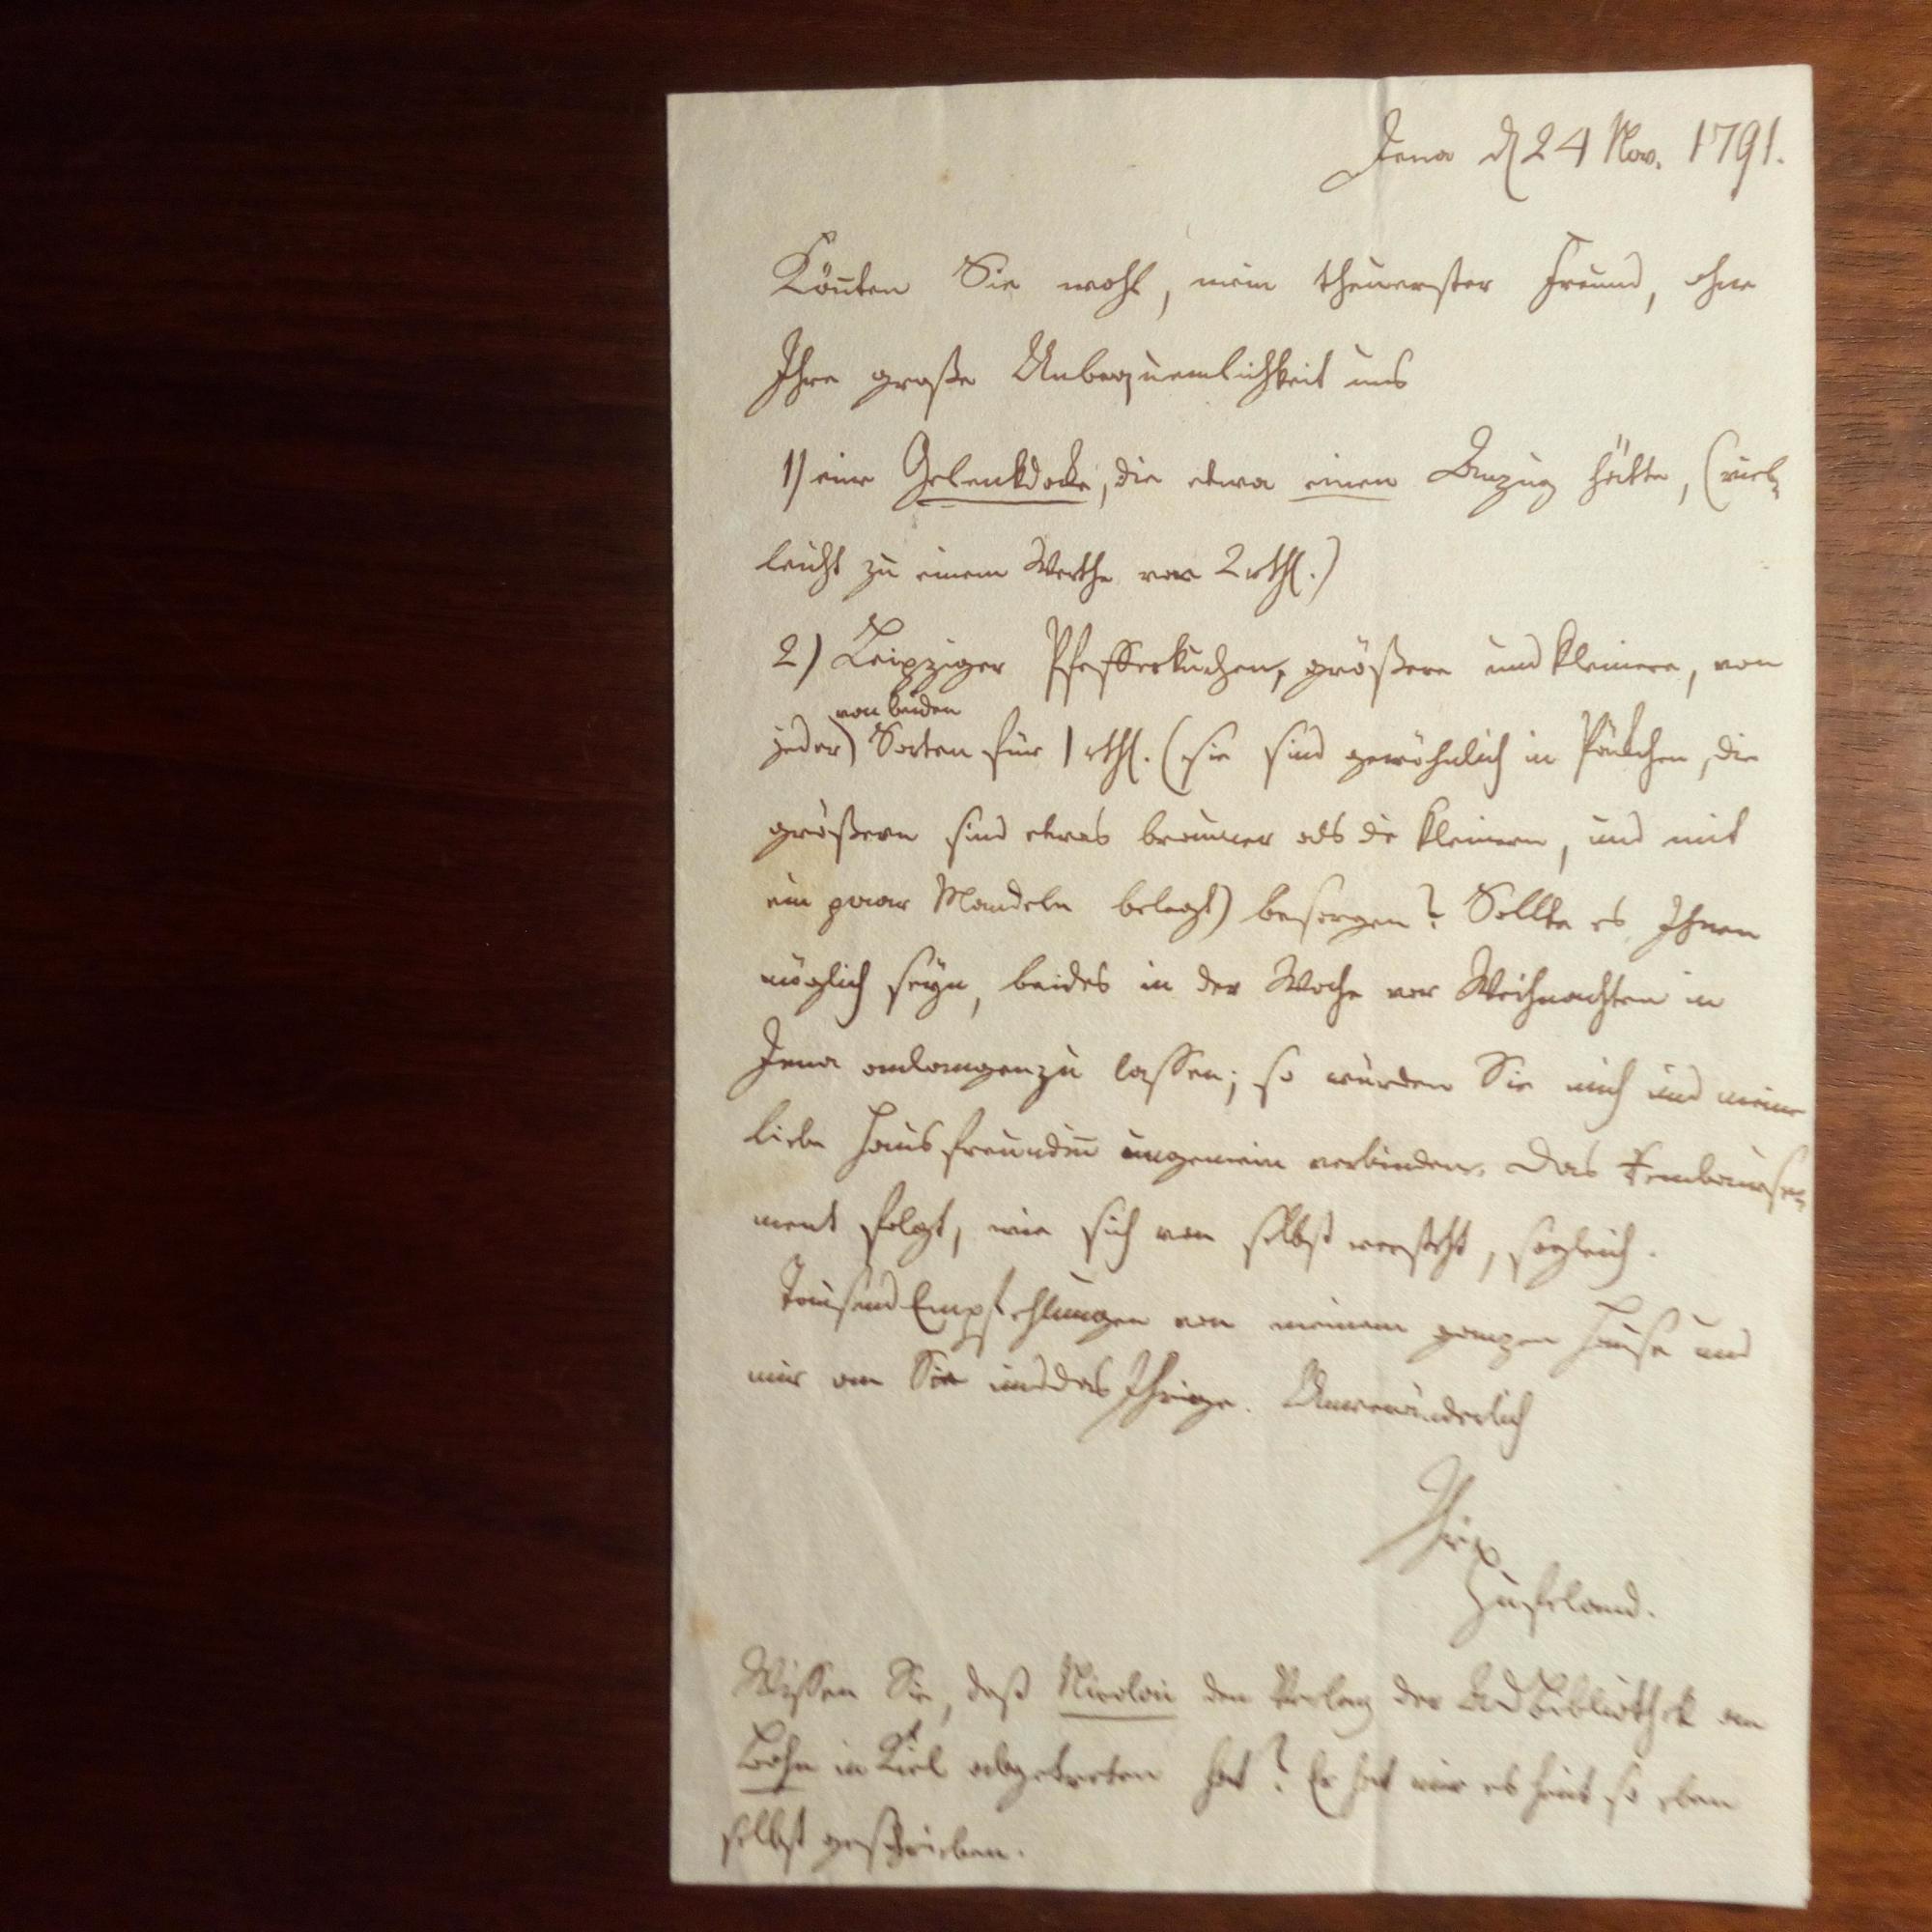 Jena d 24 Nov. 1791.
Könnten Sie wohl, mein theuerster Freund, ohne
Ihre große Unbequemlichkeit uns
1) eine Gelenkdocke, die etwa einen Anzug hätte, (viel-
leicht zu einem Werthe von 2 rthl.)
2) Leipziger Pfefferkuchen, größere und kleinere, von
von beiden
jeder) Sorten für 1 rthl. (sie sind gewöhnlich in Päckchen, die
größern sind etwas brauner als die kleinern, und mit
ein paar Mandeln belegt) besorgen? Sollte es Ihnen
möglich seyn, beides in der Woche vor Weihnachten in
Jena anlangen zu lassen; so würden Sie mich und meine
liebe Hausfreundin ungemein verbinden. Das
ment folgt, wie sich von selbst versteht, sogleich.
Tausend Empfehlungen von meinem ganzen Hause und
mir an Sie und das Ihrige. Unveränderlich
Ihr
Hufeland.
Wissen Sie, daß Nicolai den Verlag der ADBibliothek an
Bohn in Kiel abgetreten hat? Er hat mir es heut so eben
selbst geschrieben.